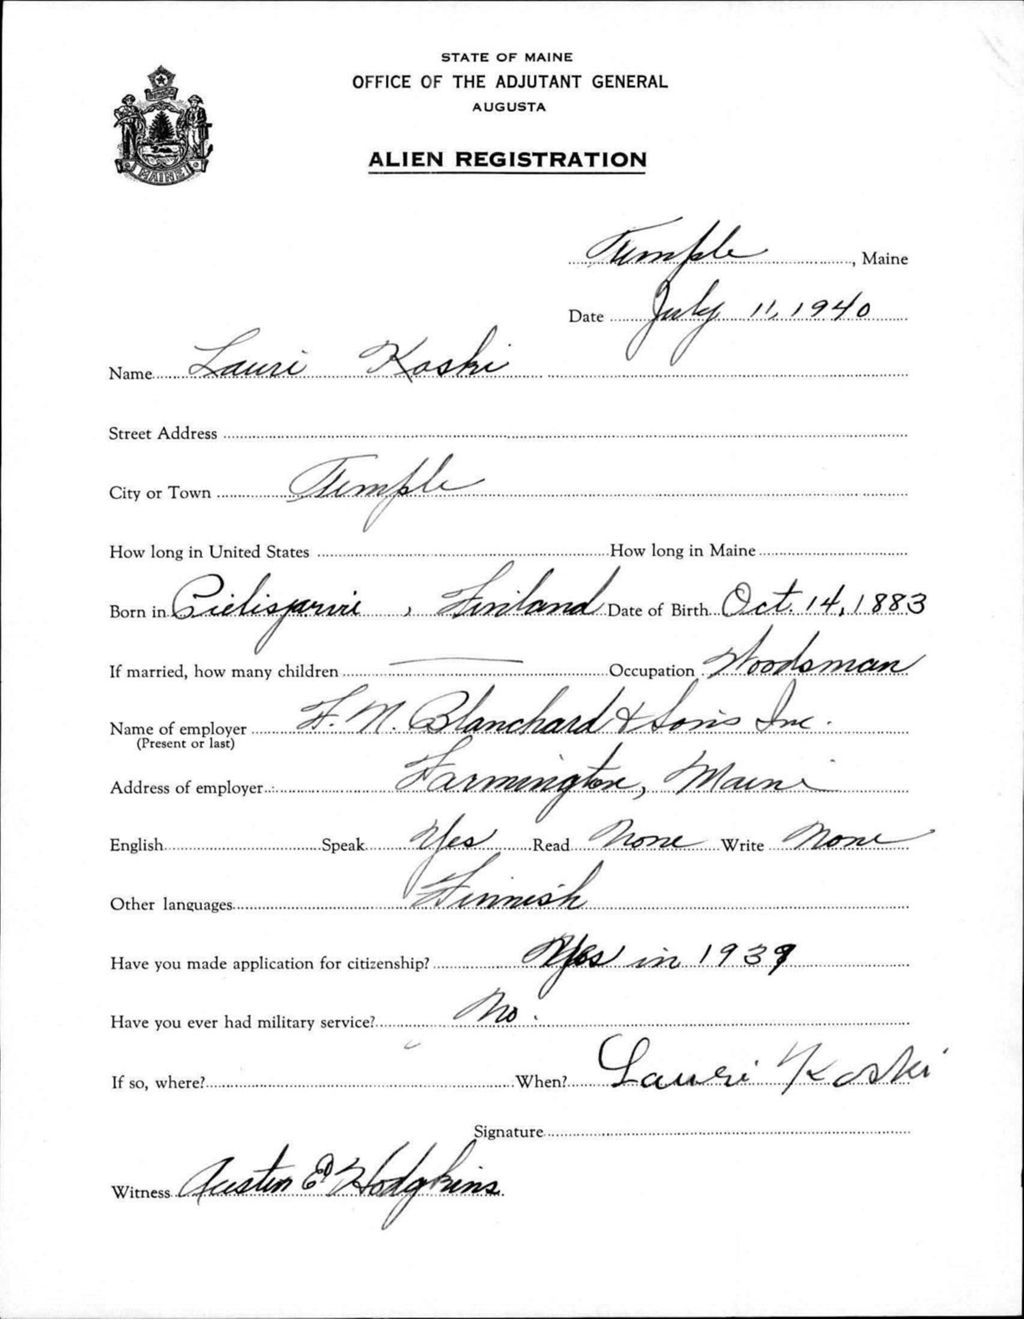 STATE OF MAINE
OFFICE OF THE ADJUTANT GENERAL
AUGUSTA
ALIEN REGISTRATION
MAINE
Temple, Maine
Date July 11, 1940
Name Lauri Koski
Street Address
City or Town Temple
How long in United States How long in Maine
Born in Pielisjarvi, Finland Date of Birth Oct. 14, 1883
If married, how many children — Occupation Woodsman
Name of employer F. N. Blanchard & Sons Inc.
(Present or last)
Address of employer Farmington, Maine
English Speak Yes Read None Write None
Other languages Finnish
Have you made application for citizenship? Yes in 1939
Have you ever had military service? No.
If so, where? When? Lauri Koski
Signature
Witness Austin E Hodgkins